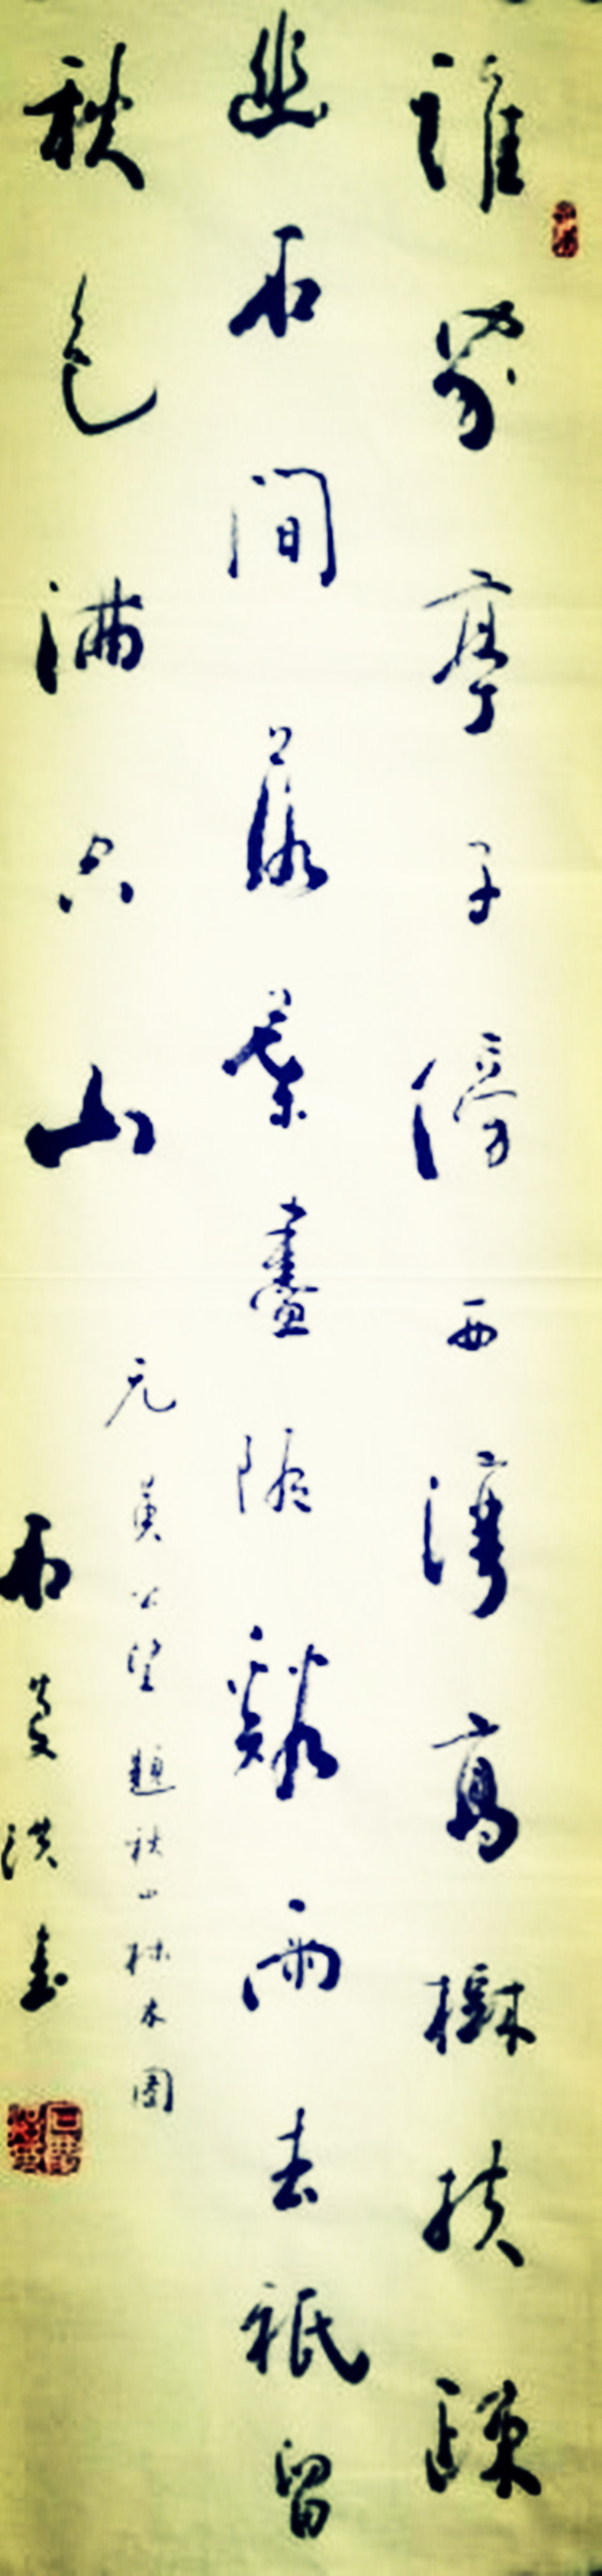 誰家亭子傍西灣高樹扶疎
幽石間落葉盡隨谿雨去祇留
秋色滿空山
元黃公望題秋山林木圖
石 洪